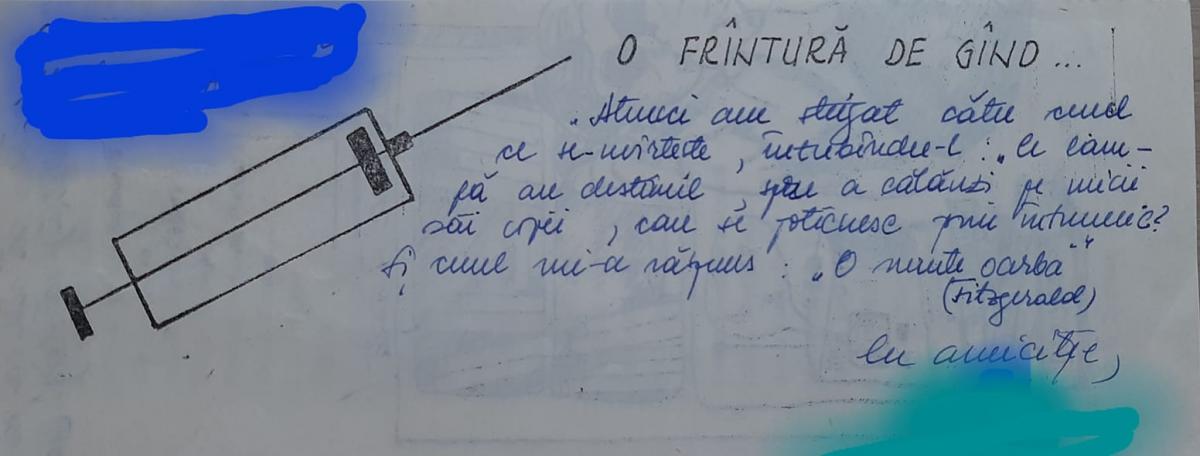 O FRÎNTURĂ DE GÎND ...
„Atunci am strigat către cerul
ce se-nvîrtește, întrebîndu-l: „Ce lam-
pă are destinul, spre a călăuzi pe micii
săi copii, care se poticnesc prin întuneric?
Și cerul mi-a răspuns: „O minte oarbă”“
(Fitzgerald)
Cu amiciție,